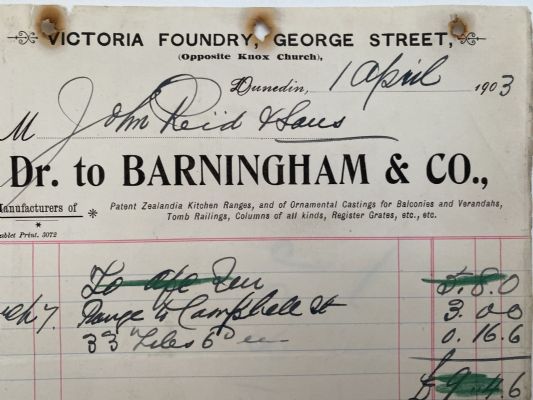 VICTORIA FOUNDRY, GEORGE STREET,
(Opposite Knox Church),
Dunedin, 1 April 1903
M John Reid & Sons
Dr. to BARNINGHAM & CO.,
Manufacturers of * Patent Zealandia Kitchen Ranges, and of Ornamental Castings for Balconies and Verandahs,
Tomb Railings, Columns of all kinds, Register Grates, etc., etc.
Tablet Print. 3072
To a/c 5. 8. 0
7. Range to Campbell St 3. 0 0
33 Tiles 6 0. 16. 6
£ 9 4. 6